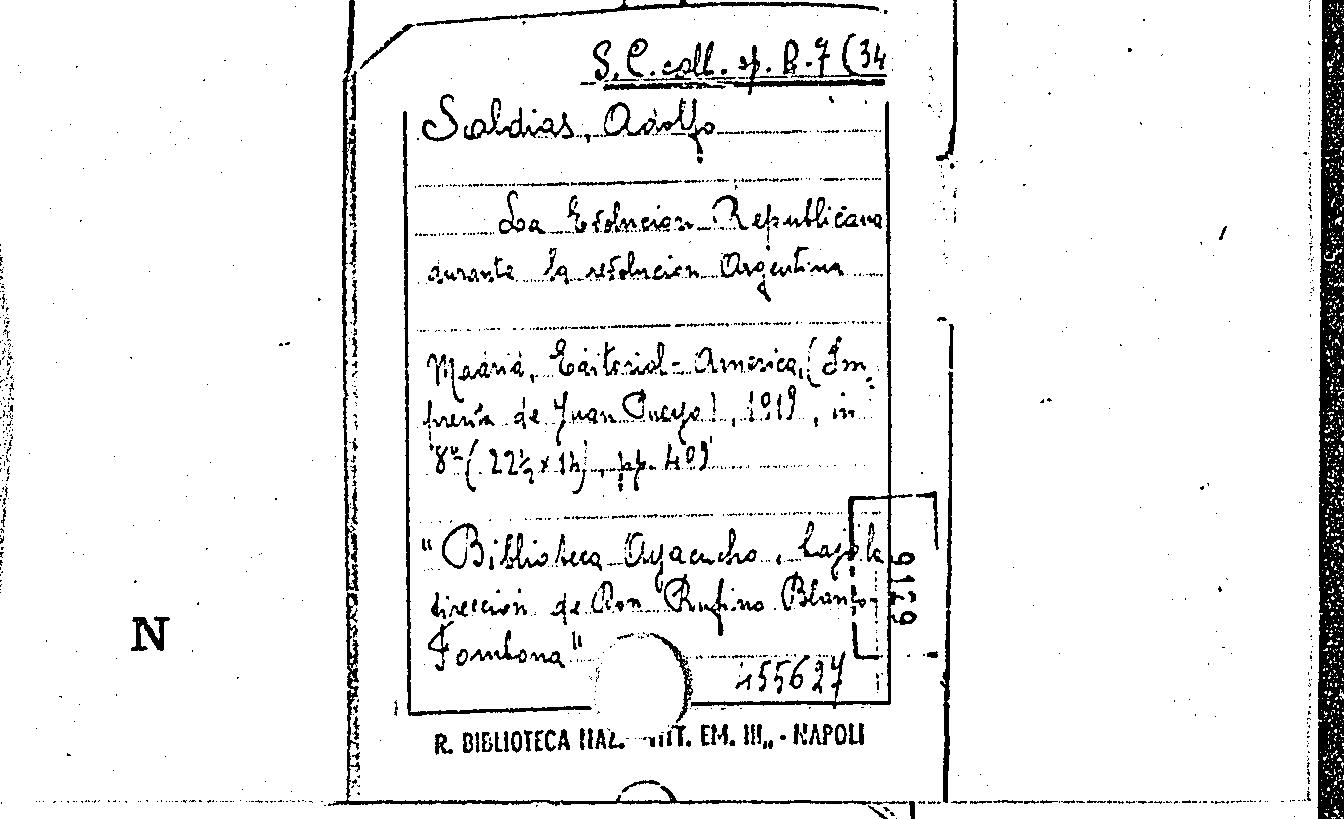 S.C. coll. sp. B.7 (34
Saldias, Adolfo
La Evolucion Republicana
durante la revolucion Argentina
Madrid, Editorial-America, (Im-
prenta de Juan Pueyo), 1919, in
8º (22½ x 14), pp. 409
"Biblioteca Ayacucho, bajo la
direccion de Don Rufino Blanco-
Fombona"
9129
455627
N
R. BIBLIOTECA NAZ. VITT. EM. III,, - NAPOLI